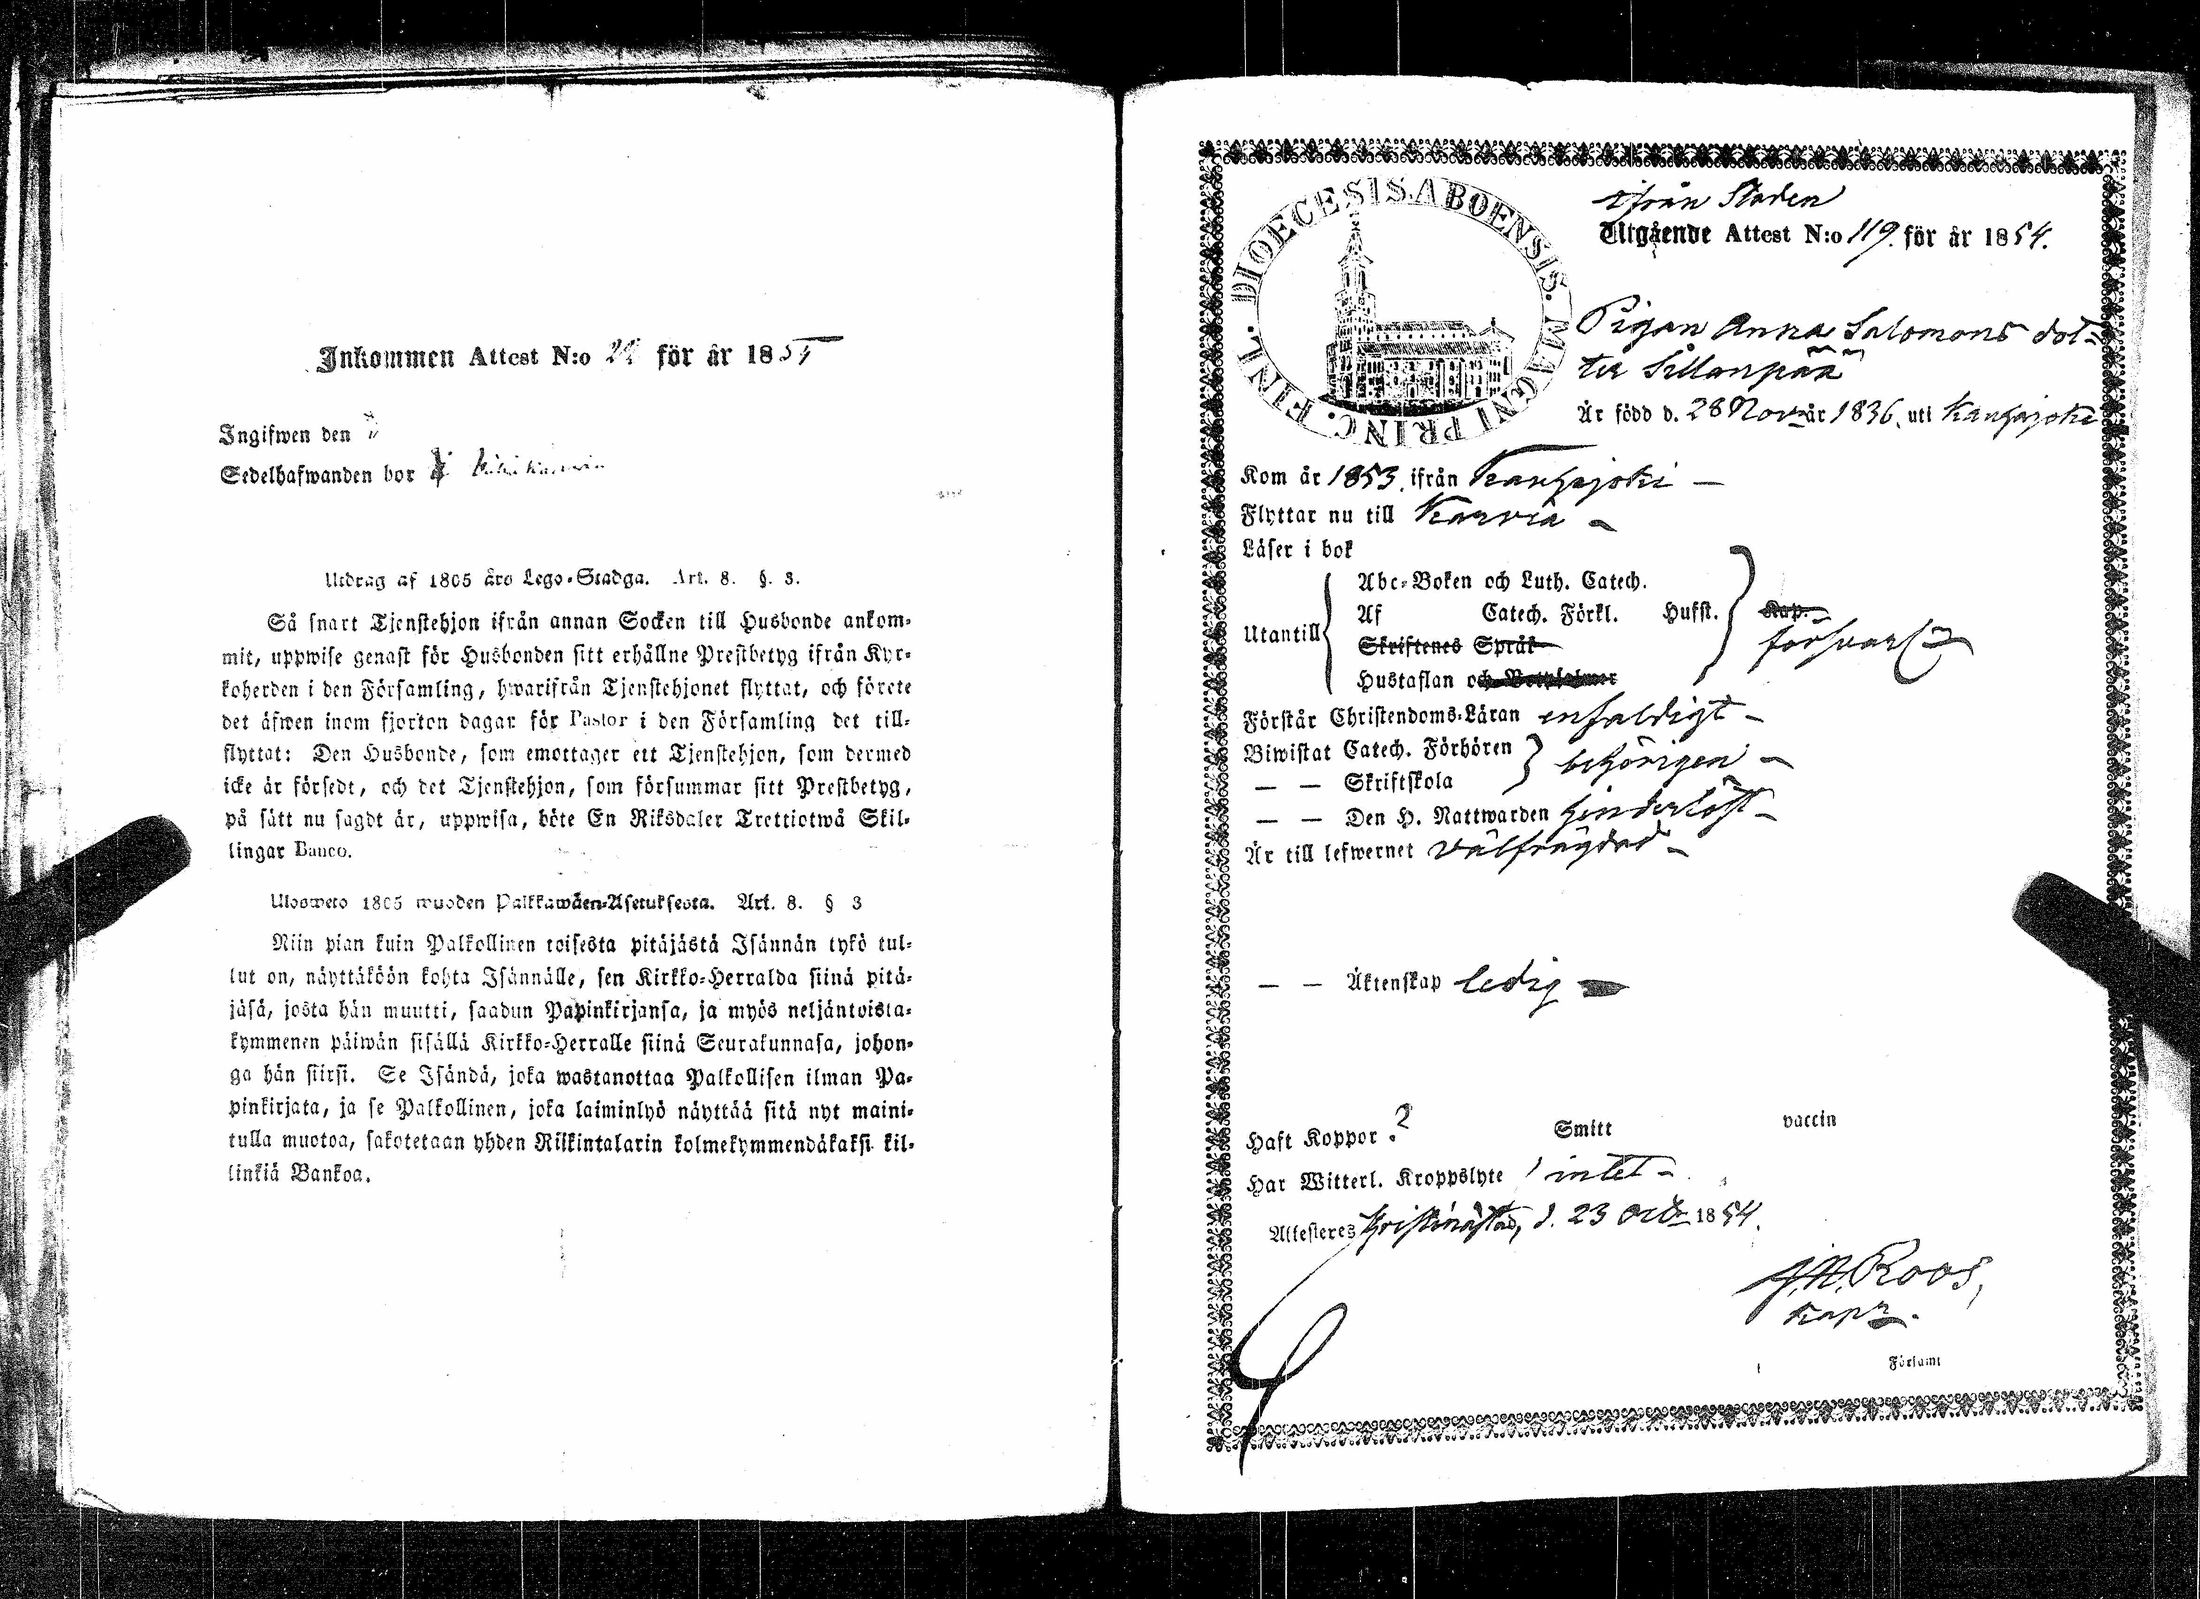 Inkommen Attest N:o för år 1854
Ingifwen den
Sedelhafwanden bor
Utdrag af 1805 års Lego-Stadga. Art. 8. §. 3.
Så snart Tjenstehjon ifrån annan Socken till Husbonde ankom-
mit, uppwise genast för Husbonden sitt erhållne Prestbetyg ifrån Kyr-
koherden i den Församling, hwarifrån Tjenstehjonet flyttat, och förete
det äfwen inom fjorton dagar för Pastor i den Församling det till-
flyttat: Den Husbonde, som emottager ett Tjenstehjon, som dermed
icke är försedt, och det Tjenstehjon, som försummar sitt Prestbetyg,
på sätt nu sagdt är, uppwisa, böte En Riksdaler Trettiotwå Skil-
lingar Banco.
Ulosweto 1805 wuoden Palkkawäen-Asetuksesta. Art. 8. § 3
Niin pian kuin Palkollinen toisesta pitäjästä Isännän tykö tul-
lut on, näyttäköön kohta Isännälle, sen Kirkko-Herralda siinä pitä-
jäsä, josta hän muutti, saadun Papinkirjansa, ja myös neljäntoista-
kymmenen päiwän sisällä Kirkko-Herralle siinä Seurakunnasa, johon-
ga hän siirsi. Se Isändä, joka wastanottaa Palkollisen ilman Pa-
pinkirjata, ja se Palkollinen, joka laiminlyö näyttää sitä nyt maini-
tulla muotoa, sakotetaan yhden Riikintalarin kolmekymmendäkaksi kil-
linkiä Bankoa.
DIOECESIS ABOENSIS. MAGNI PRINC. FINL.
ifrån Staden
Utgående Attest N:o 119. för år 1854.
Pigan Anna Salomons dot-
ter Sillanpää
Är född d. 28 Nov. år 1836, uti Kauhajoki
Kom år 1853, ifrån Kauhajoki –
Flyttar nu till Karvia –
Läser i bok
Abc-Boken och Luth. Catech.
Utantill Af Catech. Förkl. Hufst. Kap.
Skriftenes Språk försvarl.
Hustaflan och Botpsalmer
Förstår Christendoms-Läran enfaldigt –
Biwistat Catech. Förhören behörigen –
— — Skriftskola
— — Den H. Nattwarden hinderlöst –
Är till lefwernet välfrägdad –
— — Äktenskap ledig –
Haft Koppor ? Smitt vaccin
Har Witterl. Kroppslyte intet –
Attesteres Kristinestad, d. 23 Octr. 1854.
J. N. Roos,
Kapn.
Församl